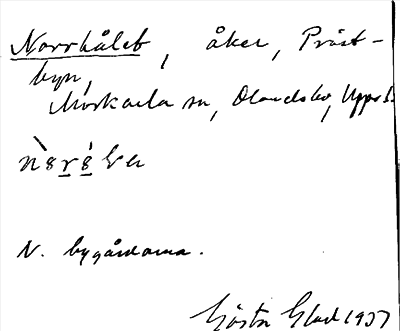 Norrhålet, åker, Präst-
byn,
Morkarla sn, Olandsbo, Upps l.
N. bygårdarna.
Gösta Glad 1937